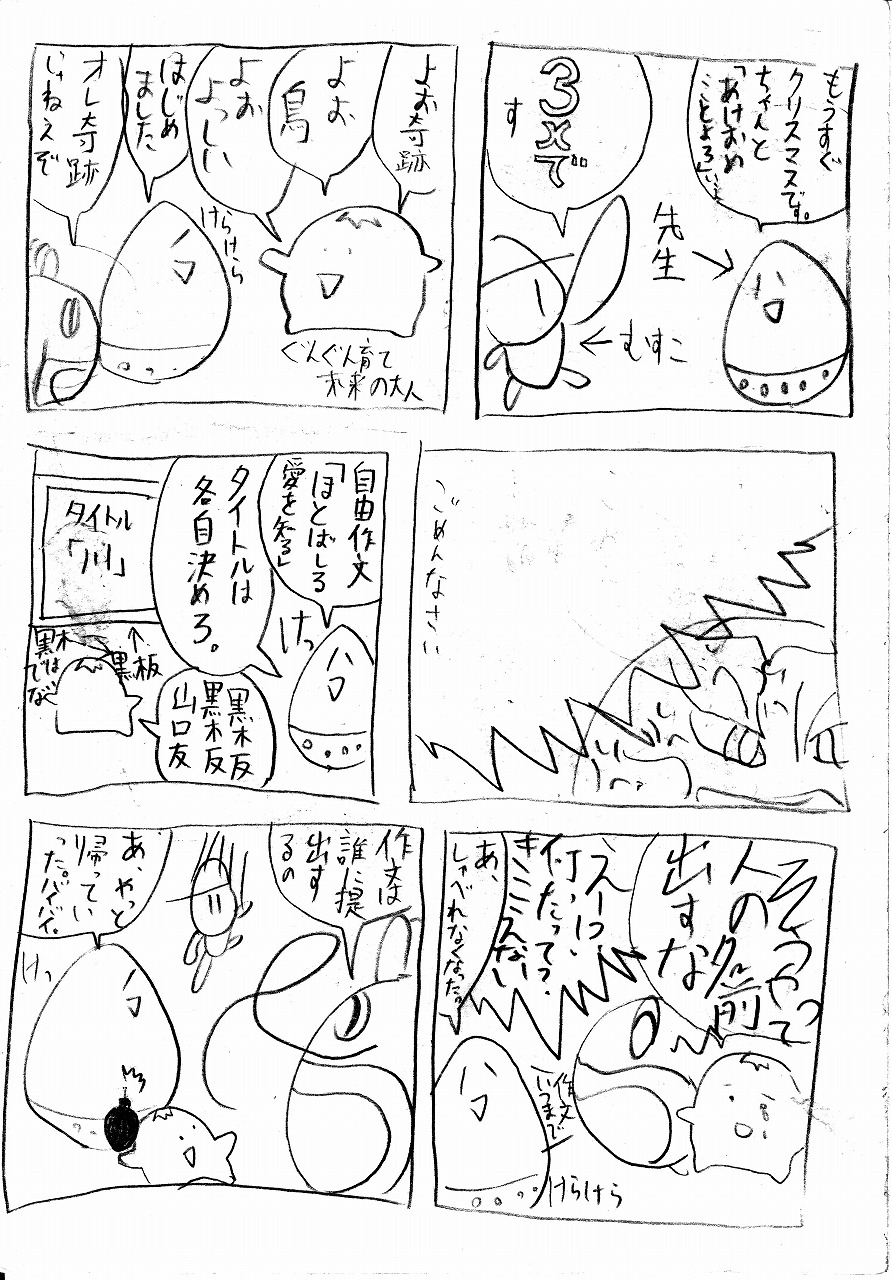 もうすぐ
クリスマスです。
ちゃんと
「あけおめ
ことよろ」いえよ
3×で
す
先生
むすこ
よお奇跡
よお
鳥
よお
よっしい
はじめ
ました
オレ奇跡
じゃねえぞ
けらけら
ぐんぐん育て
未来の大人
ごめんなさい
自由作文
「ほとばしる
愛を知る」
タイトルは
各自決めろ。
けっ
タイトル
「川」
黒板
黒木は
でない
黒木反
黒木反
山口友
そうやって
人の名前
出すな
えーっ、
何だってっ、
キミミスない
あ、
しゃべれなくなった。
作文
いつまで
けらけら
作文は
誰に提
出す
るの
あ、やっと
帰ってい
った。バイバイ。
けっ